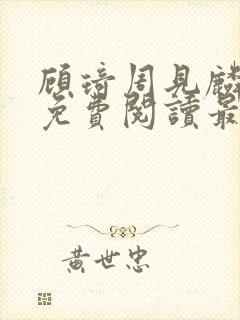 顾琦周見麟
免費閱讀最
黃世忠